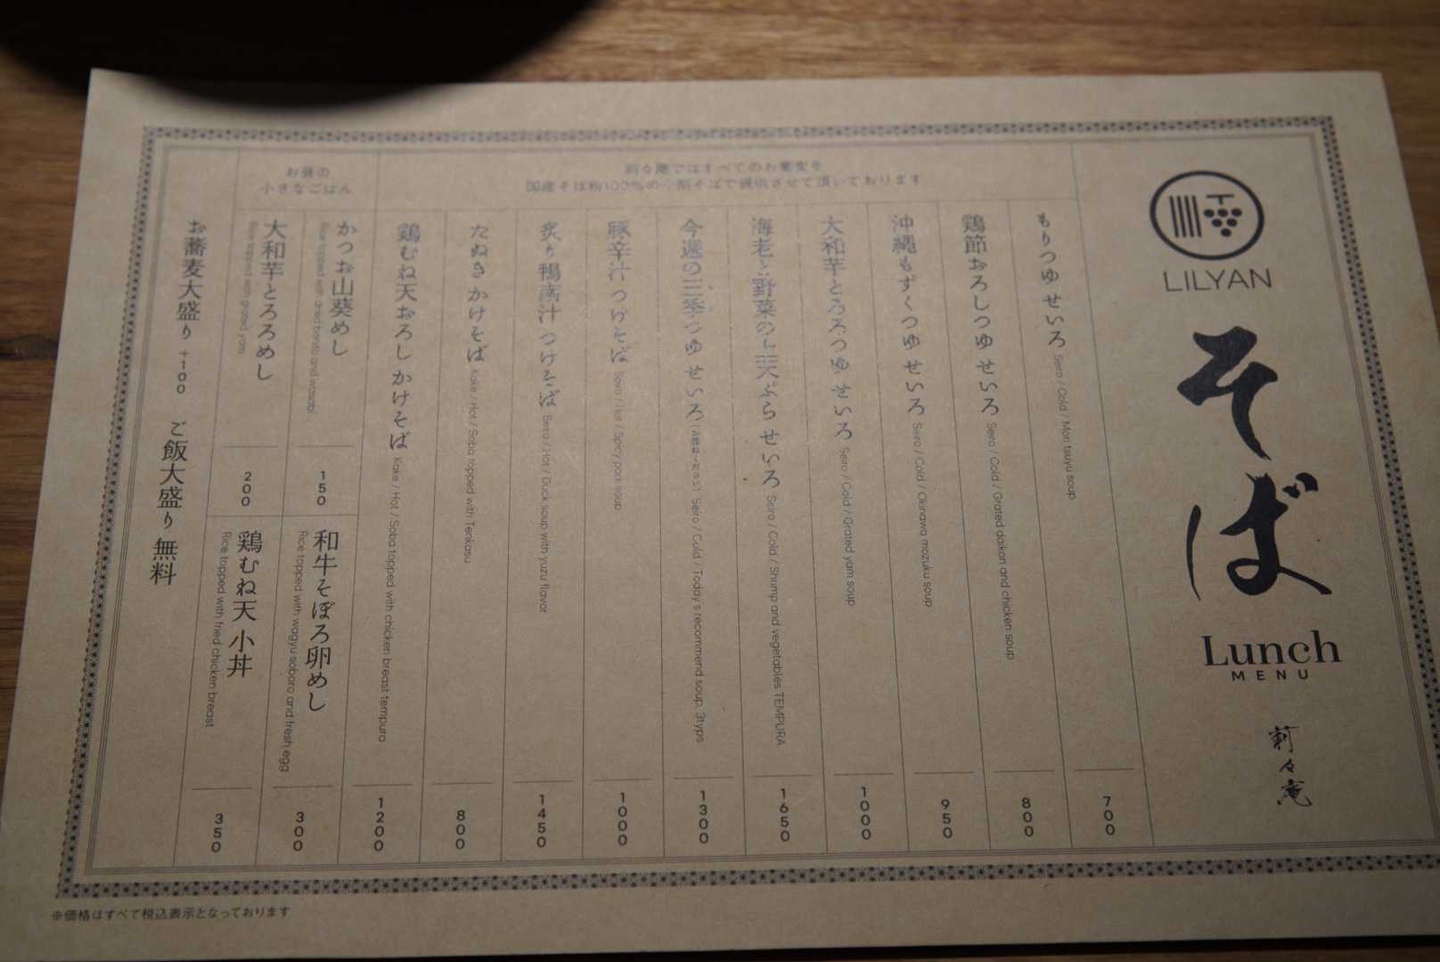 LILYAN
そば
Lunch
MENU
莉々庵
莉々庵ではすべてのお蕎麦を
国産そば粉100%の十割そばで提供させて頂いております
もりつゆ せいろ Seiro / Cold / Mori tsuyu soup 700
鶏節おろしつゆ せいろ Seiro / Cold / Grated daikon and chicken soup 800
沖縄もずくつゆ せいろ Seiro / Cold / Okinawa mozuku soup 950
大和芋とろろつゆ せいろ Seiro / Cold / Grated yam soup 1000
海老と野菜の天ぷら せいろ Seiro / Cold / Shrimp and vegetables TEMPURA 1650
今週の三季つゆ せいろ Seiro / Cold / Today's recommend soup, 3typs 1300
豚辛汁 つけそば Seiro / Hot / Spicy pork soup 1000
炙り鴨南汁 つけそば Seiro / Hot / Duck soup with yuzu flavor 1450
たぬき かけそば Kake / Hot / Soba topped with Tenkasu 800
鶏むね天おろし かけそば Kake / Hot / Soba topped with chicken breast tempura 1200
お昼の
小さなごはん
かつお山葵めし Rice topped with dried bonito and wasabi 150
和牛そぼろ卵めし Rice topped with wagyu soboro and fresh egg 300
大和芋とろろめし Rice topped with grated yam 200
鶏むね天 小丼 Rice topped with fried chicken breast 350
お蕎麦大盛り +100 ご飯大盛り 無料
※価格はすべて税込表示となっております